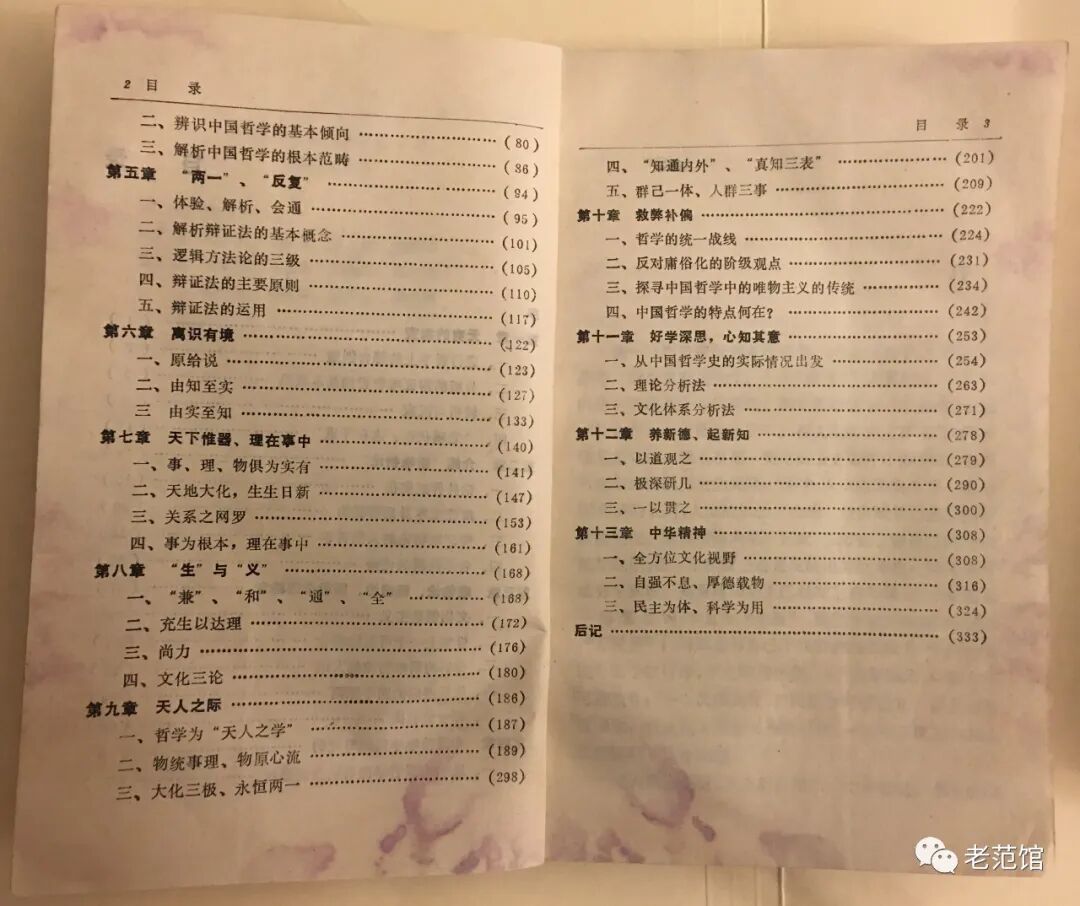 2 目 录
二、辨识中国哲学的基本倾向 ………………… (80)
三、解析中国哲学的根本范畴 ………………… (86)
第五章 “两一”、“反复” ………………… (94)
一、体验、解析、会通 ………………… (95)
二、解析辩证法的基本概念 ………………… (101)
三、逻辑方法论的三级 ………………… (105)
四、辩证法的主要原则 ………………… (110)
五、辩证法的运用 ………………… (117)
第六章 离识有境 ………………… (122)
一、原给说 ………………… (123)
二、由知至实 ………………… (127)
三 由实至知 ………………… (133)
第七章 天下惟器、理在事中 ………………… (140)
一、事、理、物俱为实有 ………………… (141)
二、天地大化，生生日新 ………………… (147)
三、关系之网罗 ………………… (153)
四、事为根本，理在事中 ………………… (161)
第八章 “生”与“义” ………………… (168)
一、“兼”、“和”、“通”、“全” ………………… (168)
二、充生以达理 ………………… (172)
三、尚力 ………………… (176)
四、文化三论 ………………… (180)
第九章 天人之际 ………………… (186)
一、哲学为“天人之学” ………………… (187)
二、物统事理、物原心流 ………………… (189)
三、大化三极、永恒两一 ………………… (298)
目 录 3
四、“知通内外”、“真知三表” ………………… (201)
五、群己一体、人群三事 ………………… (209)
第十章 救弊补偏 ………………… (222)
一、哲学的统一战线 ………………… (224)
二、反对庸俗化的阶级观点 ………………… (231)
三、探寻中国哲学中的唯物主义的传统 ………………… (234)
四、中国哲学的特点何在？ ………………… (242)
第十一章 好学深思，心知其意 ………………… (253)
一、从中国哲学史的实际情况出发 ………………… (254)
二、理论分析法 ………………… (263)
三、文化体系分析法 ………………… (271)
第十二章 养新德、起新知 ………………… (278)
一、以道观之 ………………… (279)
二、极深研几 ………………… (290)
三、一以贯之 ………………… (300)
第十三章 中华精神 ………………… (308)
一、全方位文化视野 ………………… (308)
二、自强不息、厚德载物 ………………… (316)
三、民主为体、科学为用 ………………… (324)
后记 ………………… (333)
老范馆